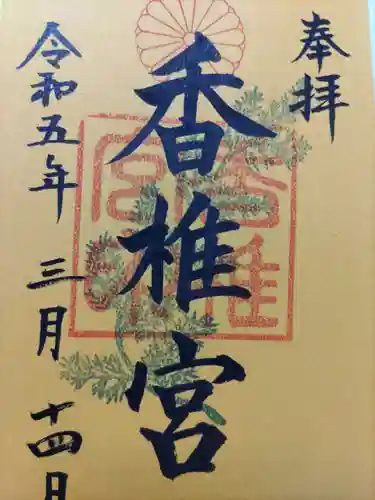 奉拝
香椎宮
令和五年三月十四日
香椎宮